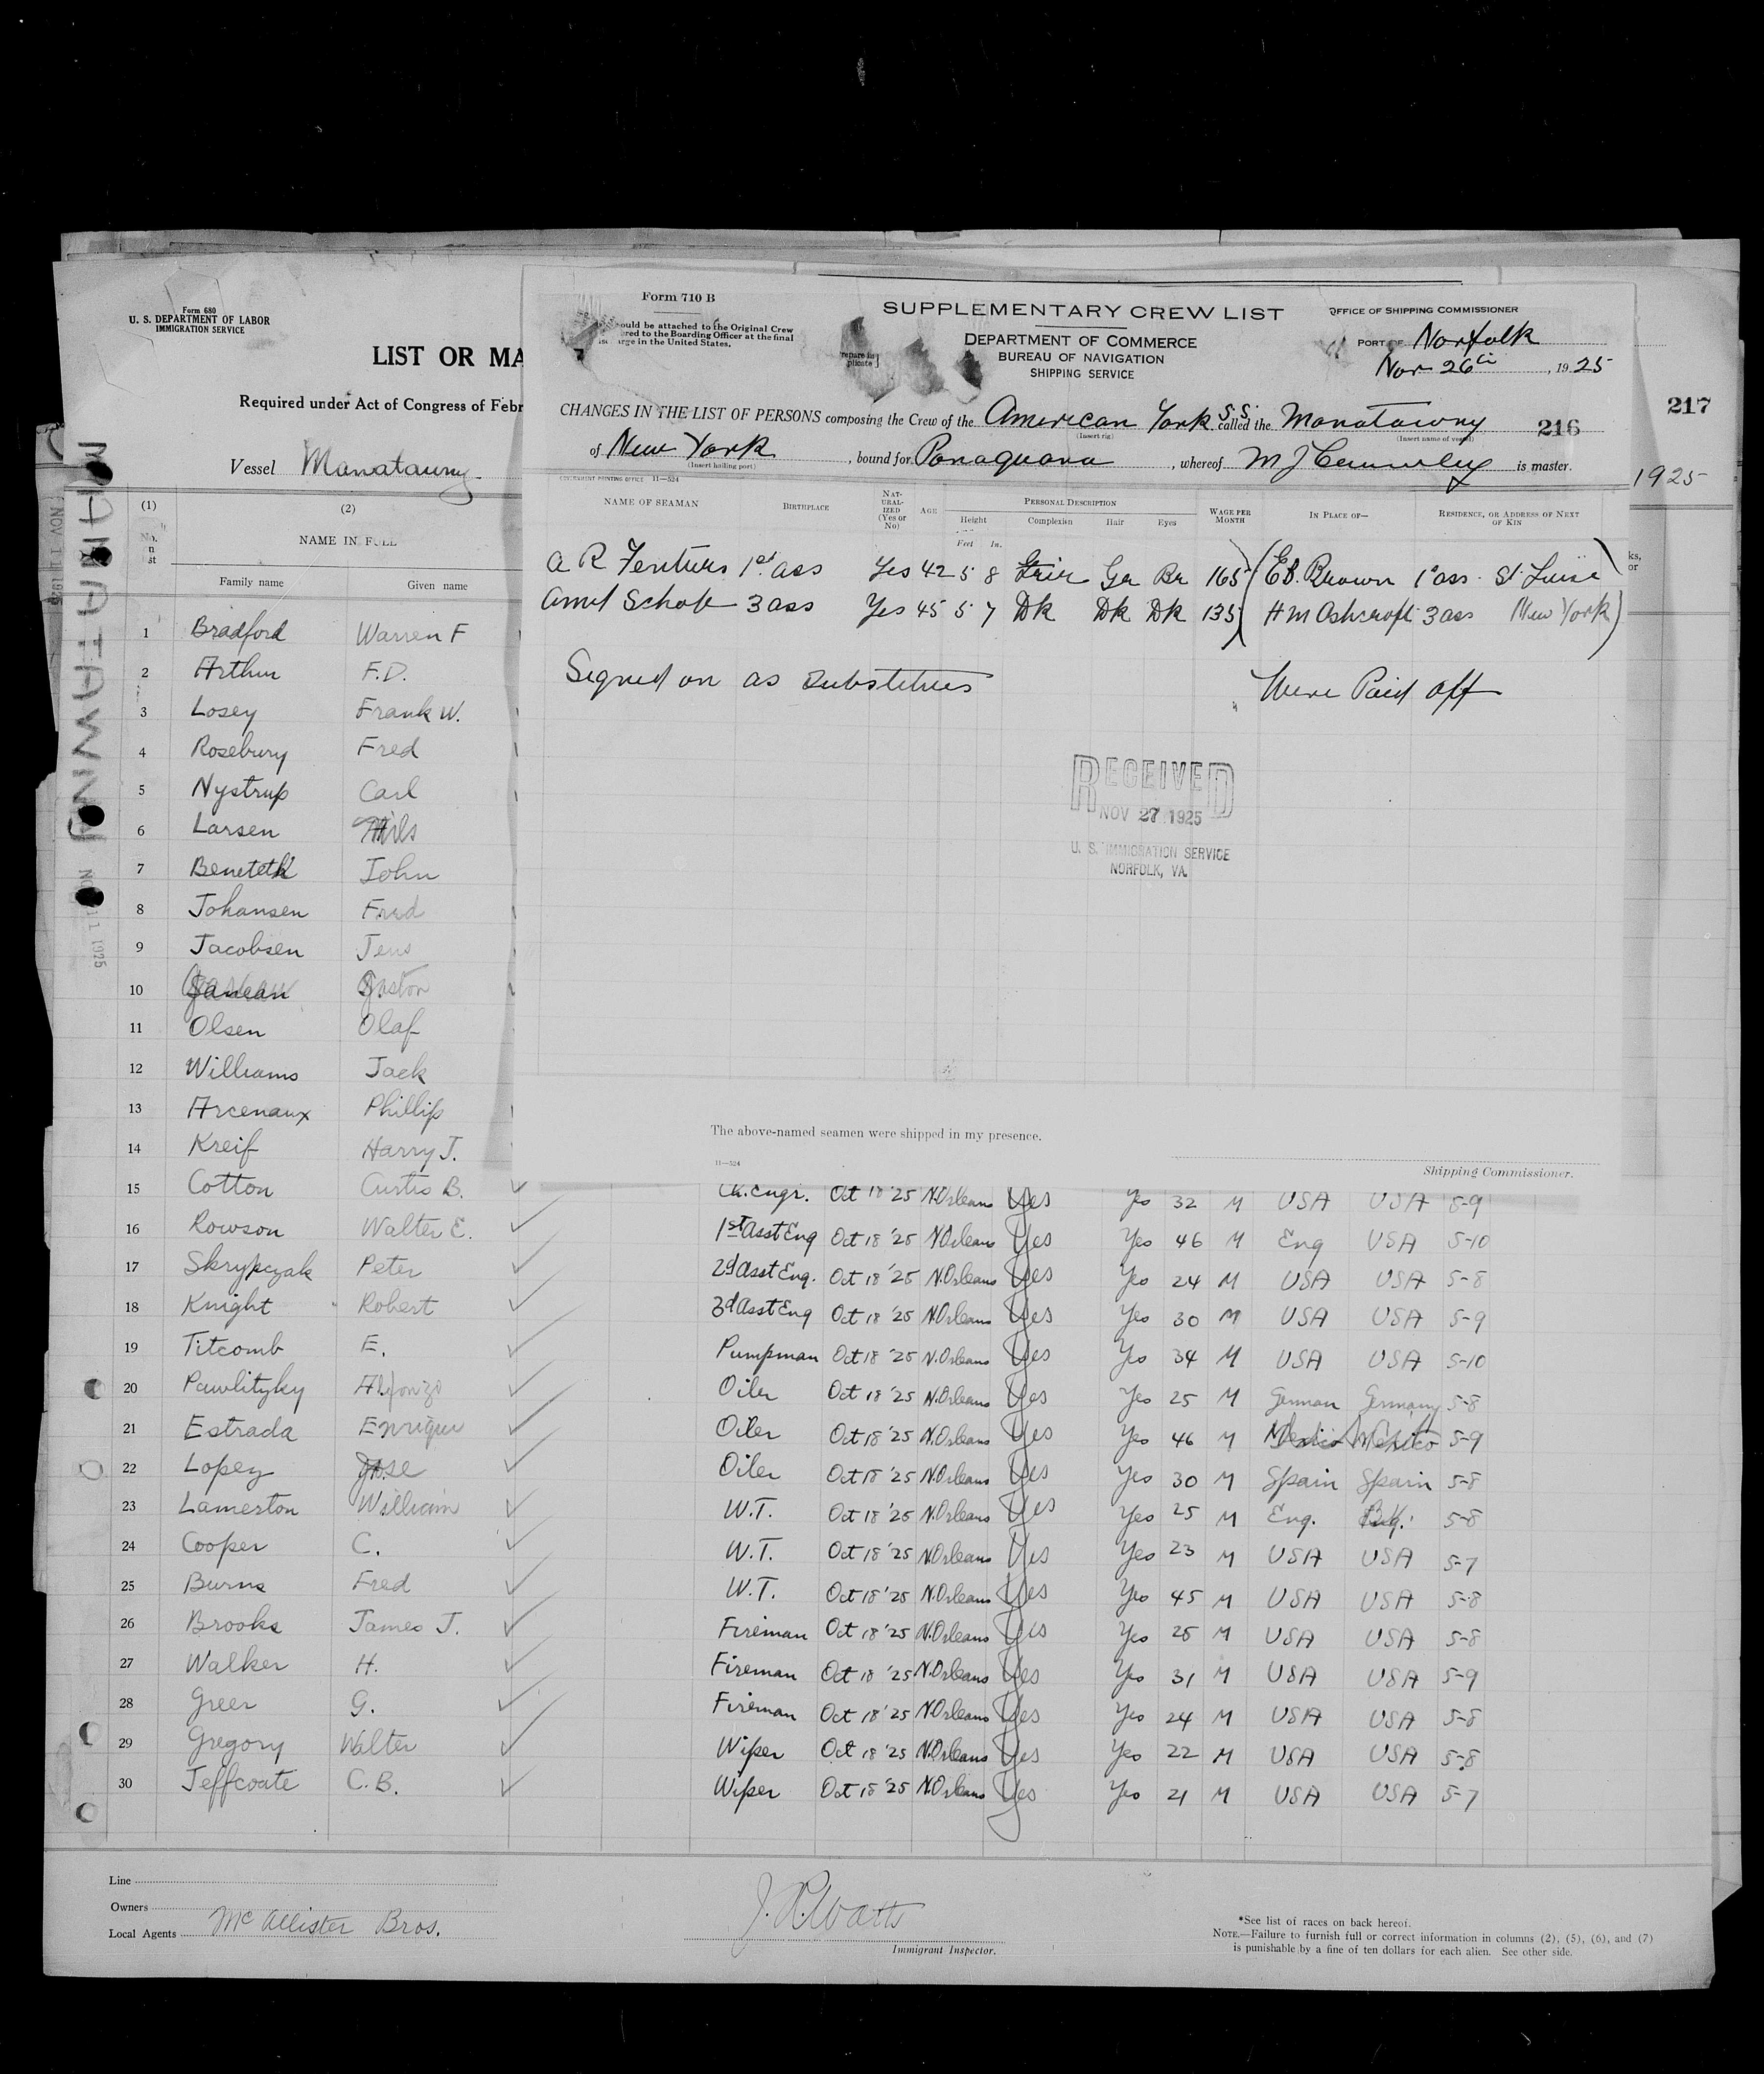 Form 680
U. S. DEPARTMENT OF LABOR
IMMIGRATION SERVICE
LIST OR MA
Required under Act of Congress of Febr
Vessel Manatawny
MANATAWNY
NOV 11 1925
217
1925
Form 710 B
ould be attached to the Original Crew
red to the Boarding Officer at the final
arge in the United States.
SUPPLEMENTARY CREW LIST
DEPARTMENT OF COMMERCE
BUREAU OF NAVIGATION
SHIPPING SERVICE
OFFICE OF SHIPPING COMMISSIONER
PORT OF Norfolk
Nov 26th, 1925
CHANGES IN THE LIST OF PERSONS composing the Crew of the American S.S. called the Manatawny 216
(Insert rig) (Insert name of vessel)
of New York, bound for, whereof M J is master.
(Insert hailing port)
GOVERNMENT PRINTING OFFICE 11—524
NAME OF SEAMAN BIRTHPLACE NAT-URAL-IZED (Yes or No) AGE PERSONAL DESCRIPTION Height Feet In. Complexion Hair Eyes WAGE PER MONTH IN PLACE OF— RESIDENCE, OR ADDRESS OF NEXT OF KIN
A R 1st ass Yes 42 5 8 Gr Br 165 (E B. Brown 1st ass
3 ass Yes 45 5 7 Dk Dk Dk 135 H M Ashcroft 3 ass New York)
Signed on as Substitutes Were Paid off
RECEIVED
NOV 27 1925
U. S. IMMIGRATION SERVICE
NORFOLK, VA.
The above-named seamen were shipped in my presence.
11—524
Shipping Commissioner.
(1) (2)
NAME IN FULL
Family name Given name
1 Bradford Warren F
2 Arthur F.D.
3 Losey Frank W.
4 Rosebury Fred
5 Nystrup Carl
6 Larsen Nils
7 John
8 Johansen Fred
9 Jacobsen Jens
10 Gaston
11 Olsen Olaf
12 Williams Jack
13 Arcenaux Phillip
14 Kreif Harry J.
15 Cotton Curtis B. Ch. Engr. Oct 18 '25 N.Orleans Yes Yes 32 M USA USA 5-9
16 Rowson Walter E. 1st Asst Eng Oct 18 '25 N.Orleans Yes Yes 46 M Eng USA 5-10
17 Skrypczak Peter 2d Asst Eng. Oct 18 '25 N.Orleans Yes Yes 24 M USA USA 5-8
18 Knight Robert 3d Asst Eng Oct 18 '25 N.Orleans Yes Yes 30 M USA USA 5-9
19 Titcomb E. Pumpman Oct 18 '25 N.Orleans Yes Yes 34 M USA USA 5-10
20 Pawlityky Alfonzo Oiler Oct 18 '25 N.Orleans Yes Yes 25 M German Germany 5-8
21 Estrada Enrique Oiler Oct 18 '25 N.Orleans Yes Yes 46 M Mexico Mexico 5-9
22 Lopez Jose Oiler Oct 18 '25 N.Orleans Yes Yes 30 M Spain Spain 5-8
23 Lamerton William W.T. Oct 18 '25 N.Orleans Yes Yes 25 M Eng. Eng. 5-8
24 Cooper C. W.T. Oct 18 '25 N.Orleans Yes Yes 23 M USA USA 5-7
25 Burns Fred W.T. Oct 18 '25 N.Orleans Yes Yes 45 M USA USA 5-8
26 Brooks James J. Fireman Oct 18 '25 N.Orleans Yes Yes 25 M USA USA 5-8
27 Walker H. Fireman Oct 18 '25 N.Orleans Yes Yes 31 M USA USA 5-9
28 Greer G. Fireman Oct 18 '25 N.Orleans Yes Yes 24 M USA USA 5-8
29 Gregory Walter Wiper Oct 18 '25 N.Orleans Yes Yes 22 M USA USA 5-8
30 Jeffcoate C.B. Wiper Oct 18 '25 N.Orleans Yes Yes 21 M USA USA 5-7
Line
Owners
Local Agents McAllister Bros.
J. R. Watts
Immigrant Inspector.
*See list of races on back hereof.
NOTE.—Failure to furnish full or correct information in columns (2), (5), (6), and (7)
is punishable by a fine of ten dollars for each alien. See other side.